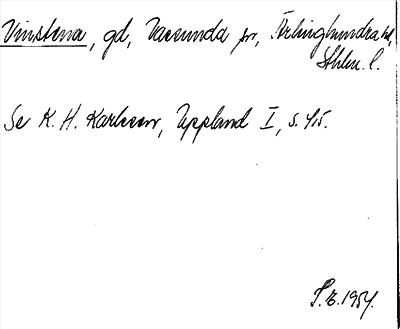 Vinstena, gd, Vassunda sn, Ärlinghundra hd,
Sthlm l.
Se K. H. Karlsson, Uppland I, s. 415.
S.E. 1954.